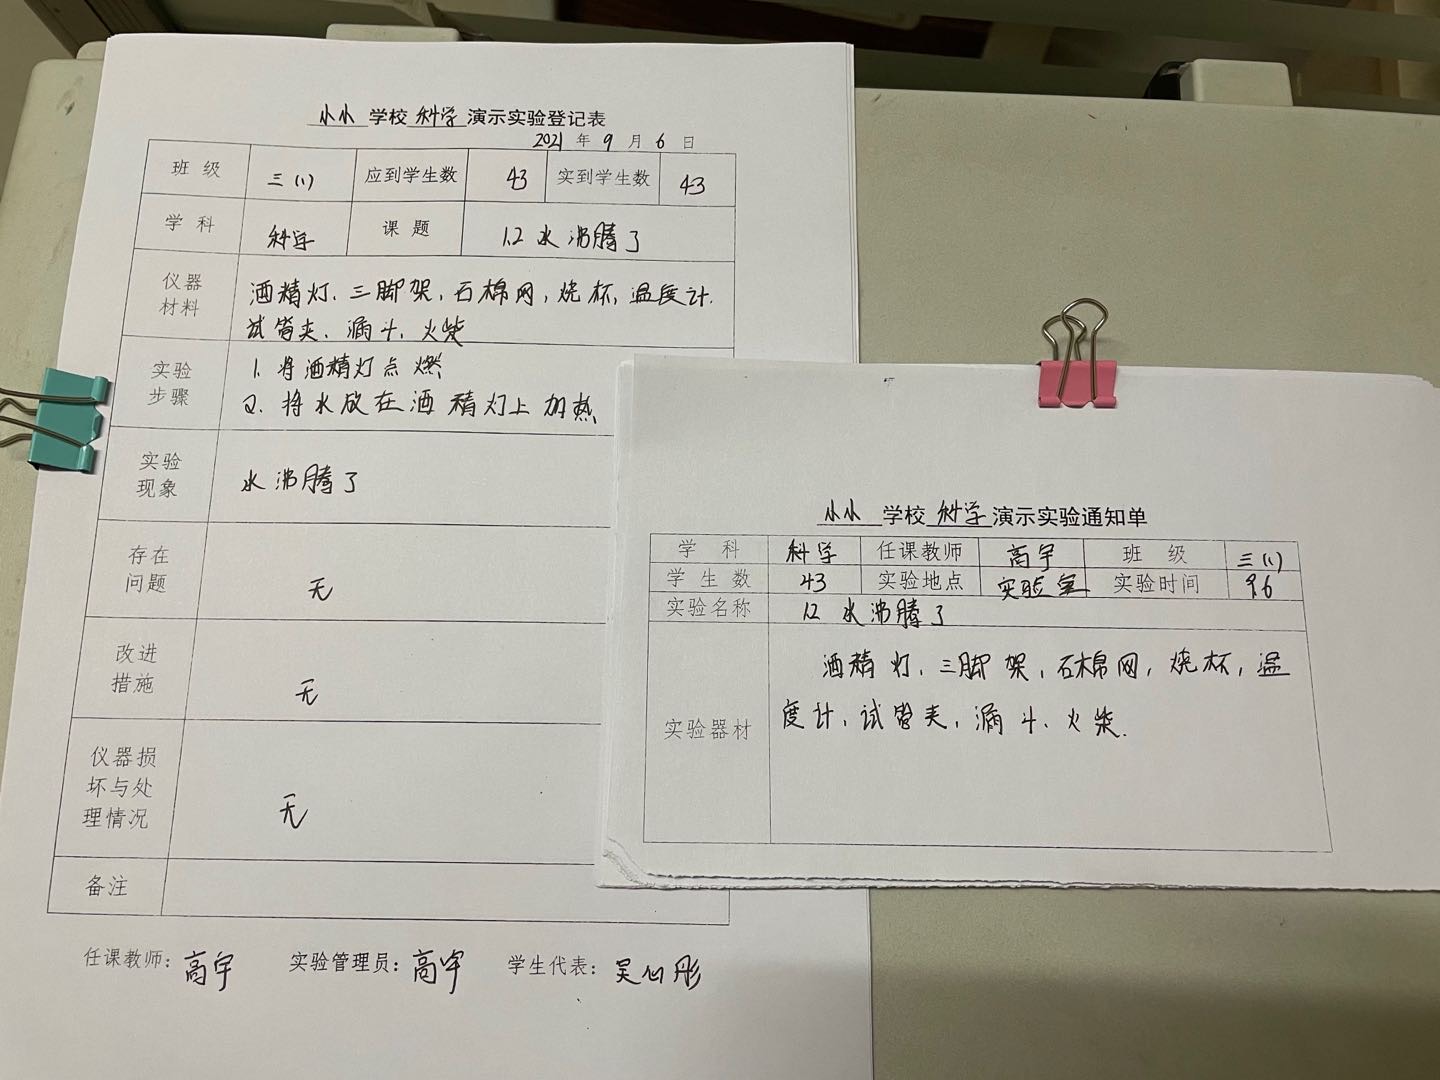 小小 学校 科学 演示实验登记表
2021 年 9 月 6 日
班 级 三(1) 应到学生数 43 实到学生数 43
学 科 科学 课 题 1.2 水沸腾了
仪器
材料
酒精灯、三脚架,石棉网,烧杯,温度计.
试管夹、漏斗、火柴
实验
步骤
1. 将酒精灯点燃
2. 将水放在酒精灯上加热
实验
现象
水沸腾了
存在
问题
无
改进
措施
无
仪器损
坏与处
理情况
无
备注
任课教师: 高宇 实验管理员: 高宇 学生代表: 吴心彤
小小 学校 科学 演示实验通知单
学 科 科学 任课教师 高宇 班 级 三(1)
学 生 数 43 实验地点 实验室 实验时间 9.6
实验名称 1.2 水沸腾了
实验器材
酒精灯,三脚架,石棉网,烧杯,温
度计、试管夹,漏斗、火柴.